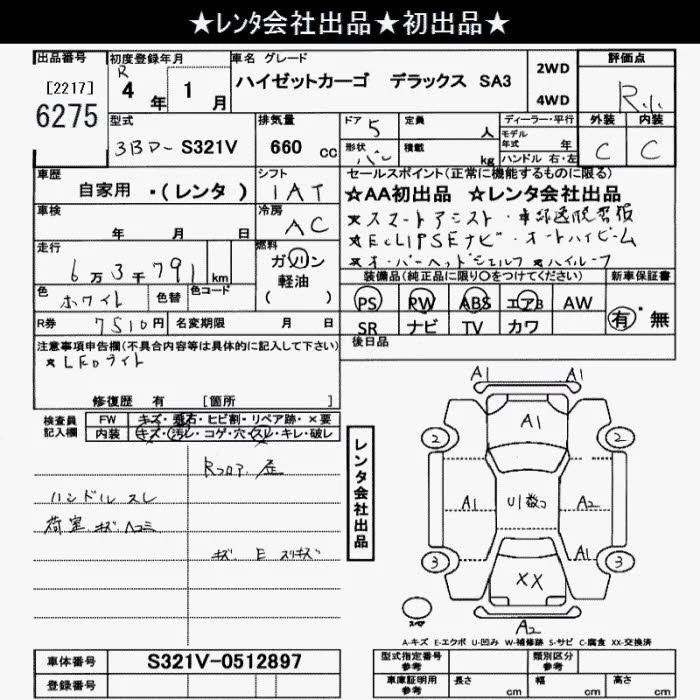 ★レンタ会社出品★初出品★
出品番号 初度登録年月 車名 グレード 評価点
[2217] R 4 年 1 月 ハイゼットカーゴ デラックス SA3 2WD 4WD
6275
型式 排気量 ドア 5 定員 人 ディーラー・平行 外装 内装
3BD- S321V 660 cc 形状 バン 積載 kg モデル年式 年 C C
ハンドル 右・左
車歴 シフト セールスポイント(正常に機能するものに限る)
自家用 ・(レンタ) IAT ★AA初出品 ☆レンタ会社出品
車検 冷房 ★スマートアシスト・
年 月 日 AC ★ECLIPSEナビ・オートハイビーム
走行 燃料 ★オーバーヘッドシェルフ ★ハイルーフ
6万3千791km ガソリン
軽油
( )
装備品(純正品に限り○をつけてください) 新車保証書
色 色替 色コード
ホワイト
PS PW ABS エアB AW 有・無
R券 7510円 名変期限 月 日 SR ナビ TV カワ
後日品
注意事項申告欄(不具合内容等は具体的に記入して下さい)
★LEDライト
修復歴 有 [箇所 ]
検査員記入欄 FW キズ・飛石・ヒビ割・リペア跡・×要
内装 キズ・汚レ・コゲ・穴・スレ・キレ・破レ
Rフロア 歪
ハンドル スレ
荷室 キズ ヘコミ
キズ E スリキズ
レンタ会社出品
A1 A1
A1
2 2
A1 U1数コ A2
A1
3 3
XX
スペア
A2
A-キズ E-エクボ U-凹み W-補修跡 S-サビ C-腐食 XX-交換済
車体番号 S321V-0512897
登録番号
型式指定番号参考 類別区分参考
車庫証明用参考 長さ cm 幅 cm 高さ cm